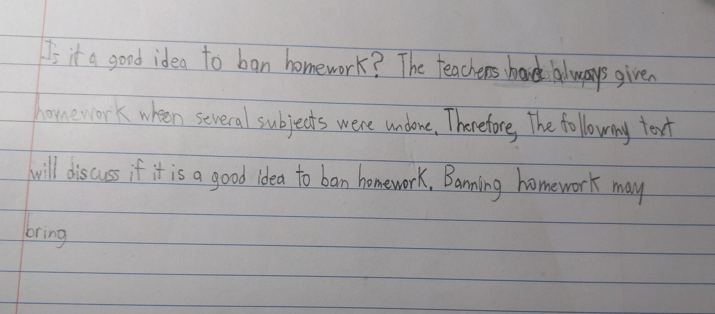 Is it a good idea to ban homework? The teachers had always given
homework when several subjects were undone. Therefore, The following text
will discuss if it is a good idea to ban homework. Banning homework may
bring